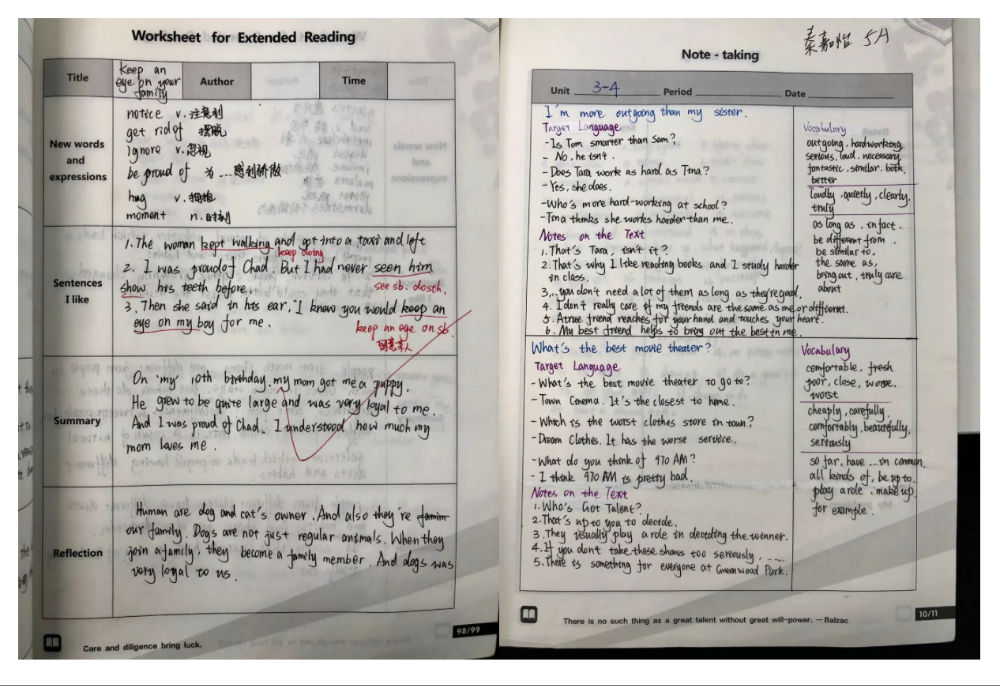 Worksheet for Extended Reading
Title
Keep an
eye on your
family
Author
Time
New words
and
expressions
notice v. 注意到
get rid of 摆脱
ignore v. 忽视
be proud of 为...感到骄傲
hug v. 拥抱
moment n. 时刻
Sentences
I like
1. The woman kept walking and got into a taxi and left
keep doing
2. I was proud of Chad. But I had never seen him
show his teeth before.
see sb. do sth.
3. Then she said in his ear, "I know you would keep an
eye on my boy for me.
keep an eye on sb
Summary
On my 10th birthday, my mom got me a puppy.
He grew to be quite large and was very loyal to me.
And I was proud of Chad. I understood how much my
mom loves me.
Reflection
Human are dog and cat's owner. And also they're
our family. Dogs are not just regular animals. When they
join a family, they become a family member. And dogs was
very loyal to us.
98/99
Care and diligence bring luck.
秦嘉怡 5A
Note - taking
Unit 3-4 Period Date
I'm more outgoing than my sister.
Target Language
- Is Tom smarter than Sam?
- No, he isn't.
- Does Tara work as hard as Tina?
- Yes, she does.
- Who's more hard-working at school?
- Tina thinks she works harder than me.
Notes on the Text
1. That's Tara, isn't it?
2. That's why I like reading books and I study harder
in class.
3. ...you don't need a lot of them as long as they're good.
4. I don't really care if my friends are the same as me or different.
5. A true friend reaches for your hand and touches your heart.
6. My best friend helps to bring out the best in me.
Vocabulary
outgoing, hardworking
serious, loud, necessary
fantastic, similar, both,
better
loudly, quietly, clearly,
truly
as long as, in fact,
be different from,
be similar to,
the same as,
bring out, truly care
about
What's the best movie theater?
Target Language
- What's the best movie theater to go to?
- Town Cinema. It's the closest to home.
- Which is the worst clothes store in town?
- Dream Clothes. It has the worst service.
- What do you think of 970 AM?
- I think 970 AM is pretty bad.
Notes on the Text
1. Who's Got Talent?
2. That's up to you to decide.
3. They usually play a role in deciding the winner.
4. If you don't take these shows too seriously, ....
5. There is something for everyone at Greenwood Park.
Vocabulary
comfortable, fresh
poor, close, worse,
worst
cheaply, carefully,
comfortably, beautifully,
seriously
so far, have ... in common,
all kinds of, be up to,
play a role, make up,
for example.
There is no such thing as a great talent without great will-power. — Balzac
10/11